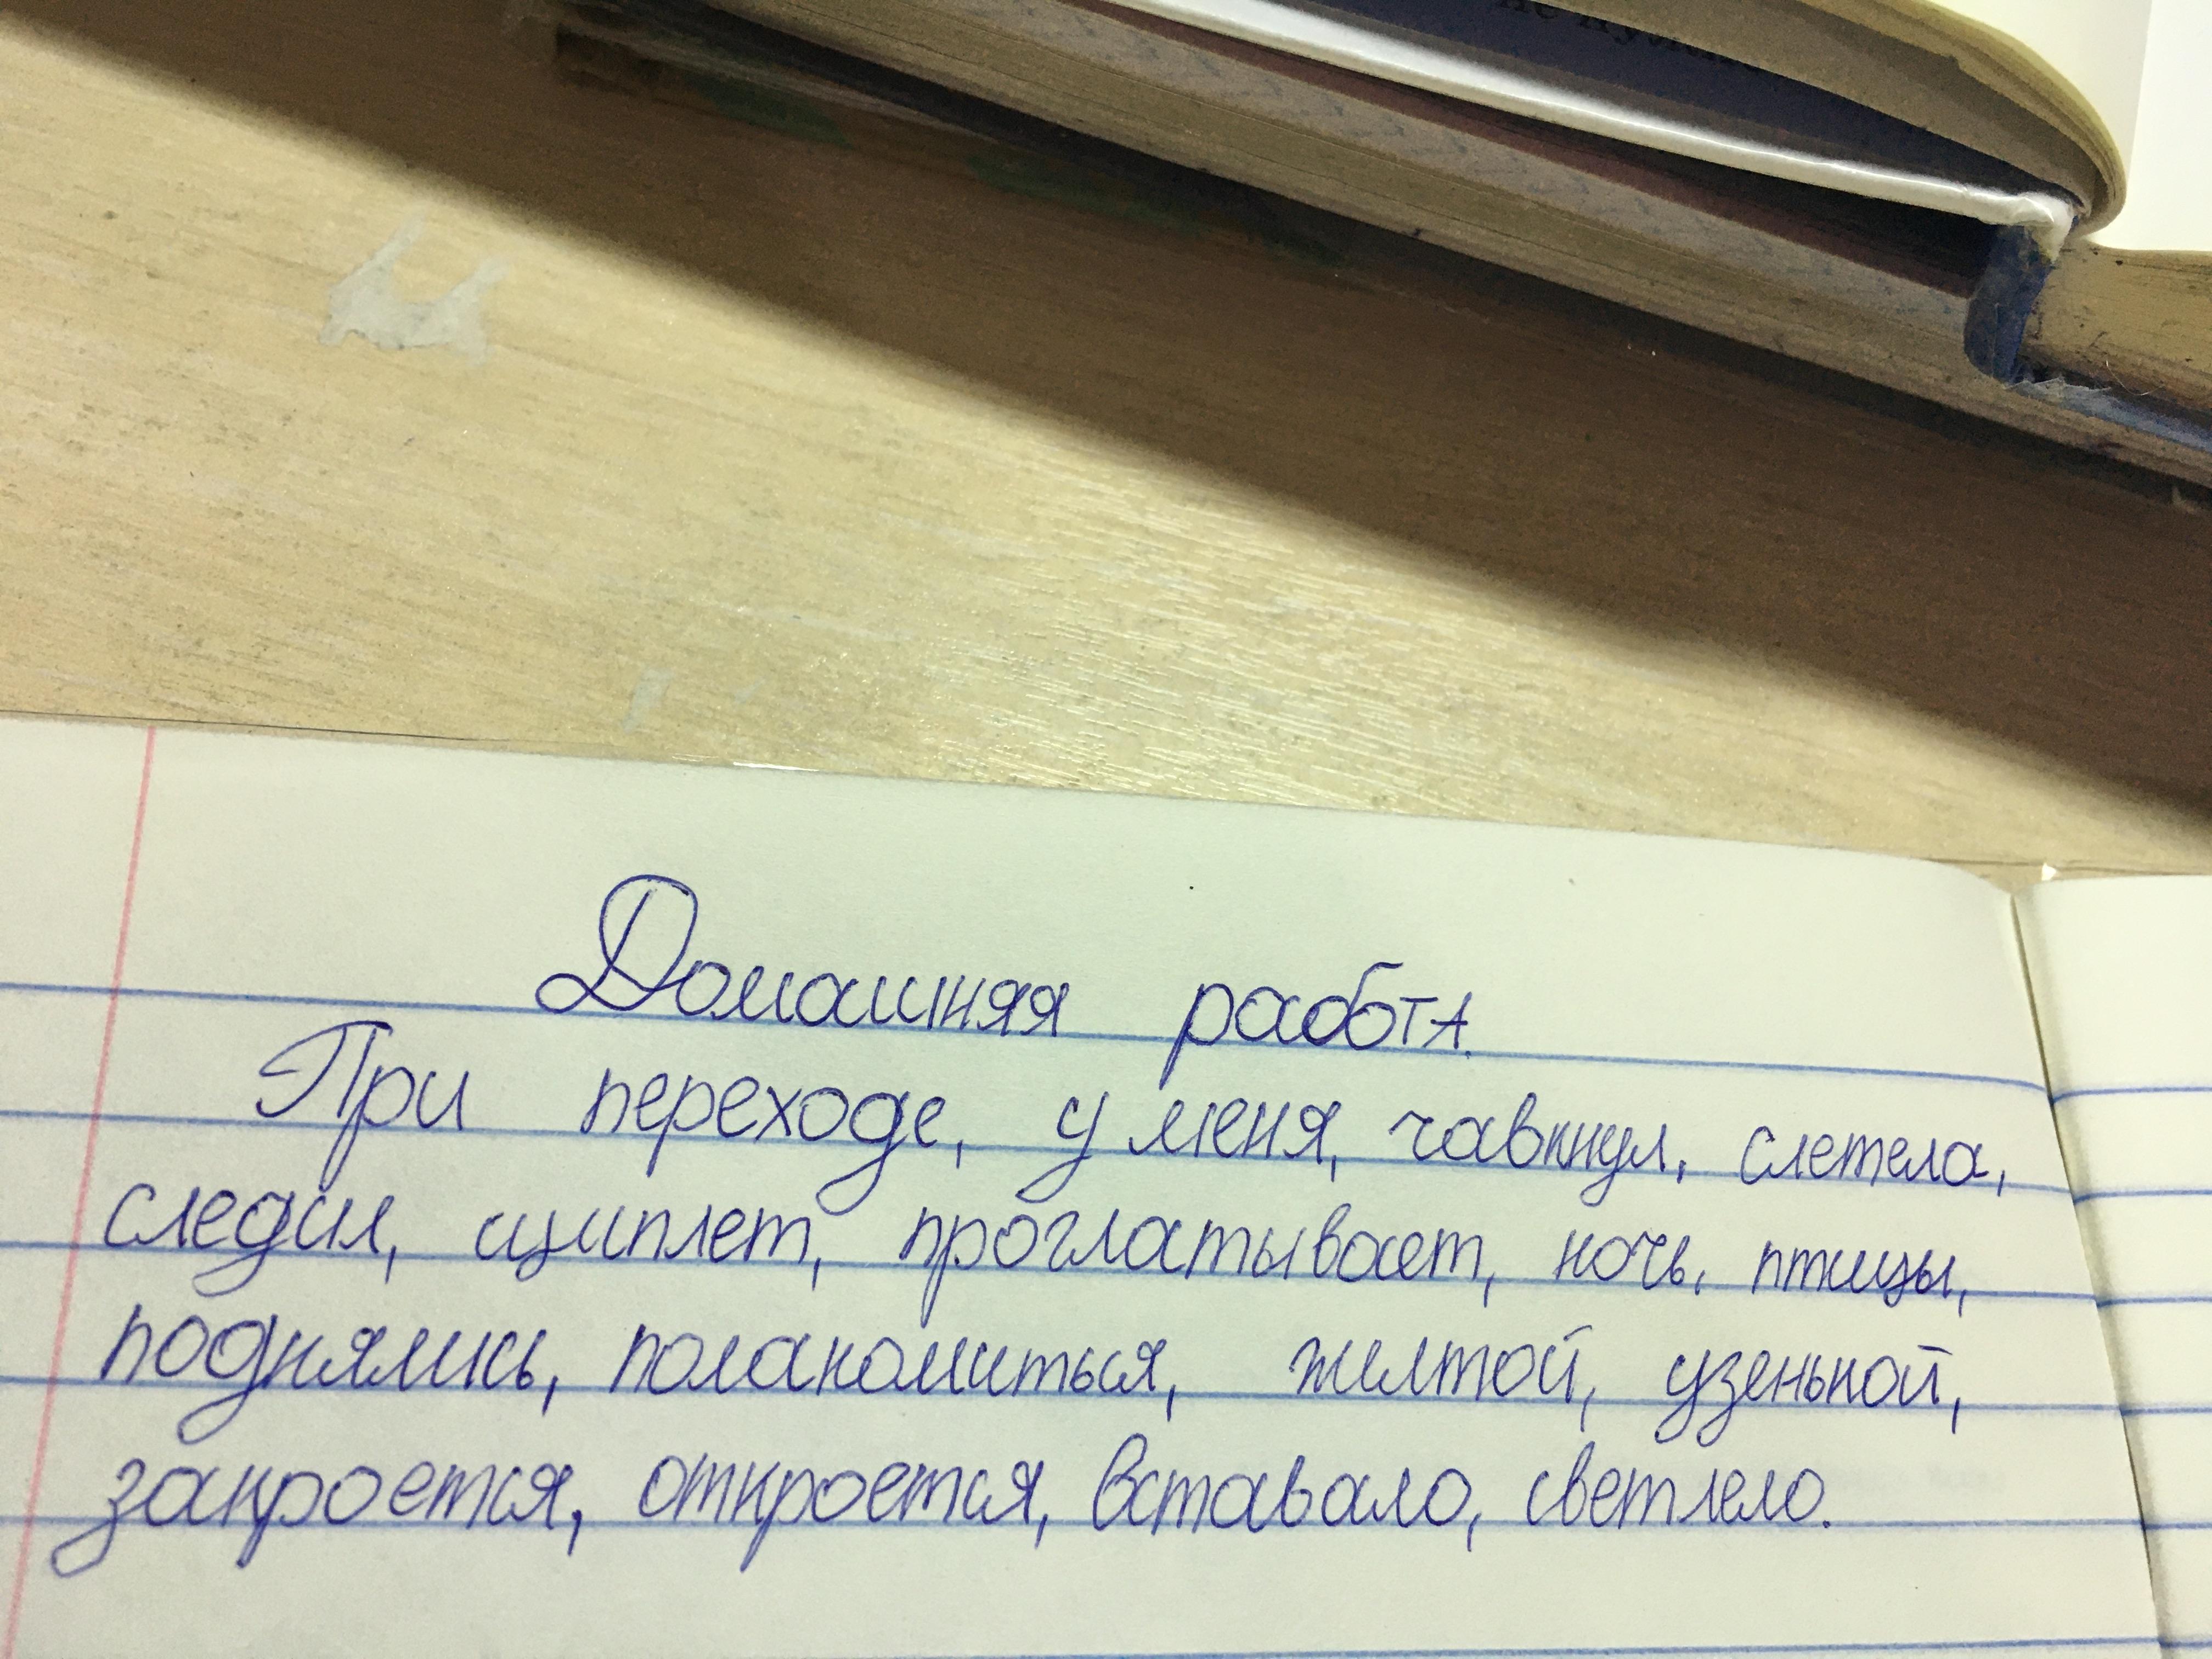 Домашняя работа.
При переходе, у меня, чавкнул, слетела,
следил, щиплет, проглатывает, ночь, птицы,
поднялись, полакомиться, желтой, узенькой,
закроется, откроется, вставало, светлело.